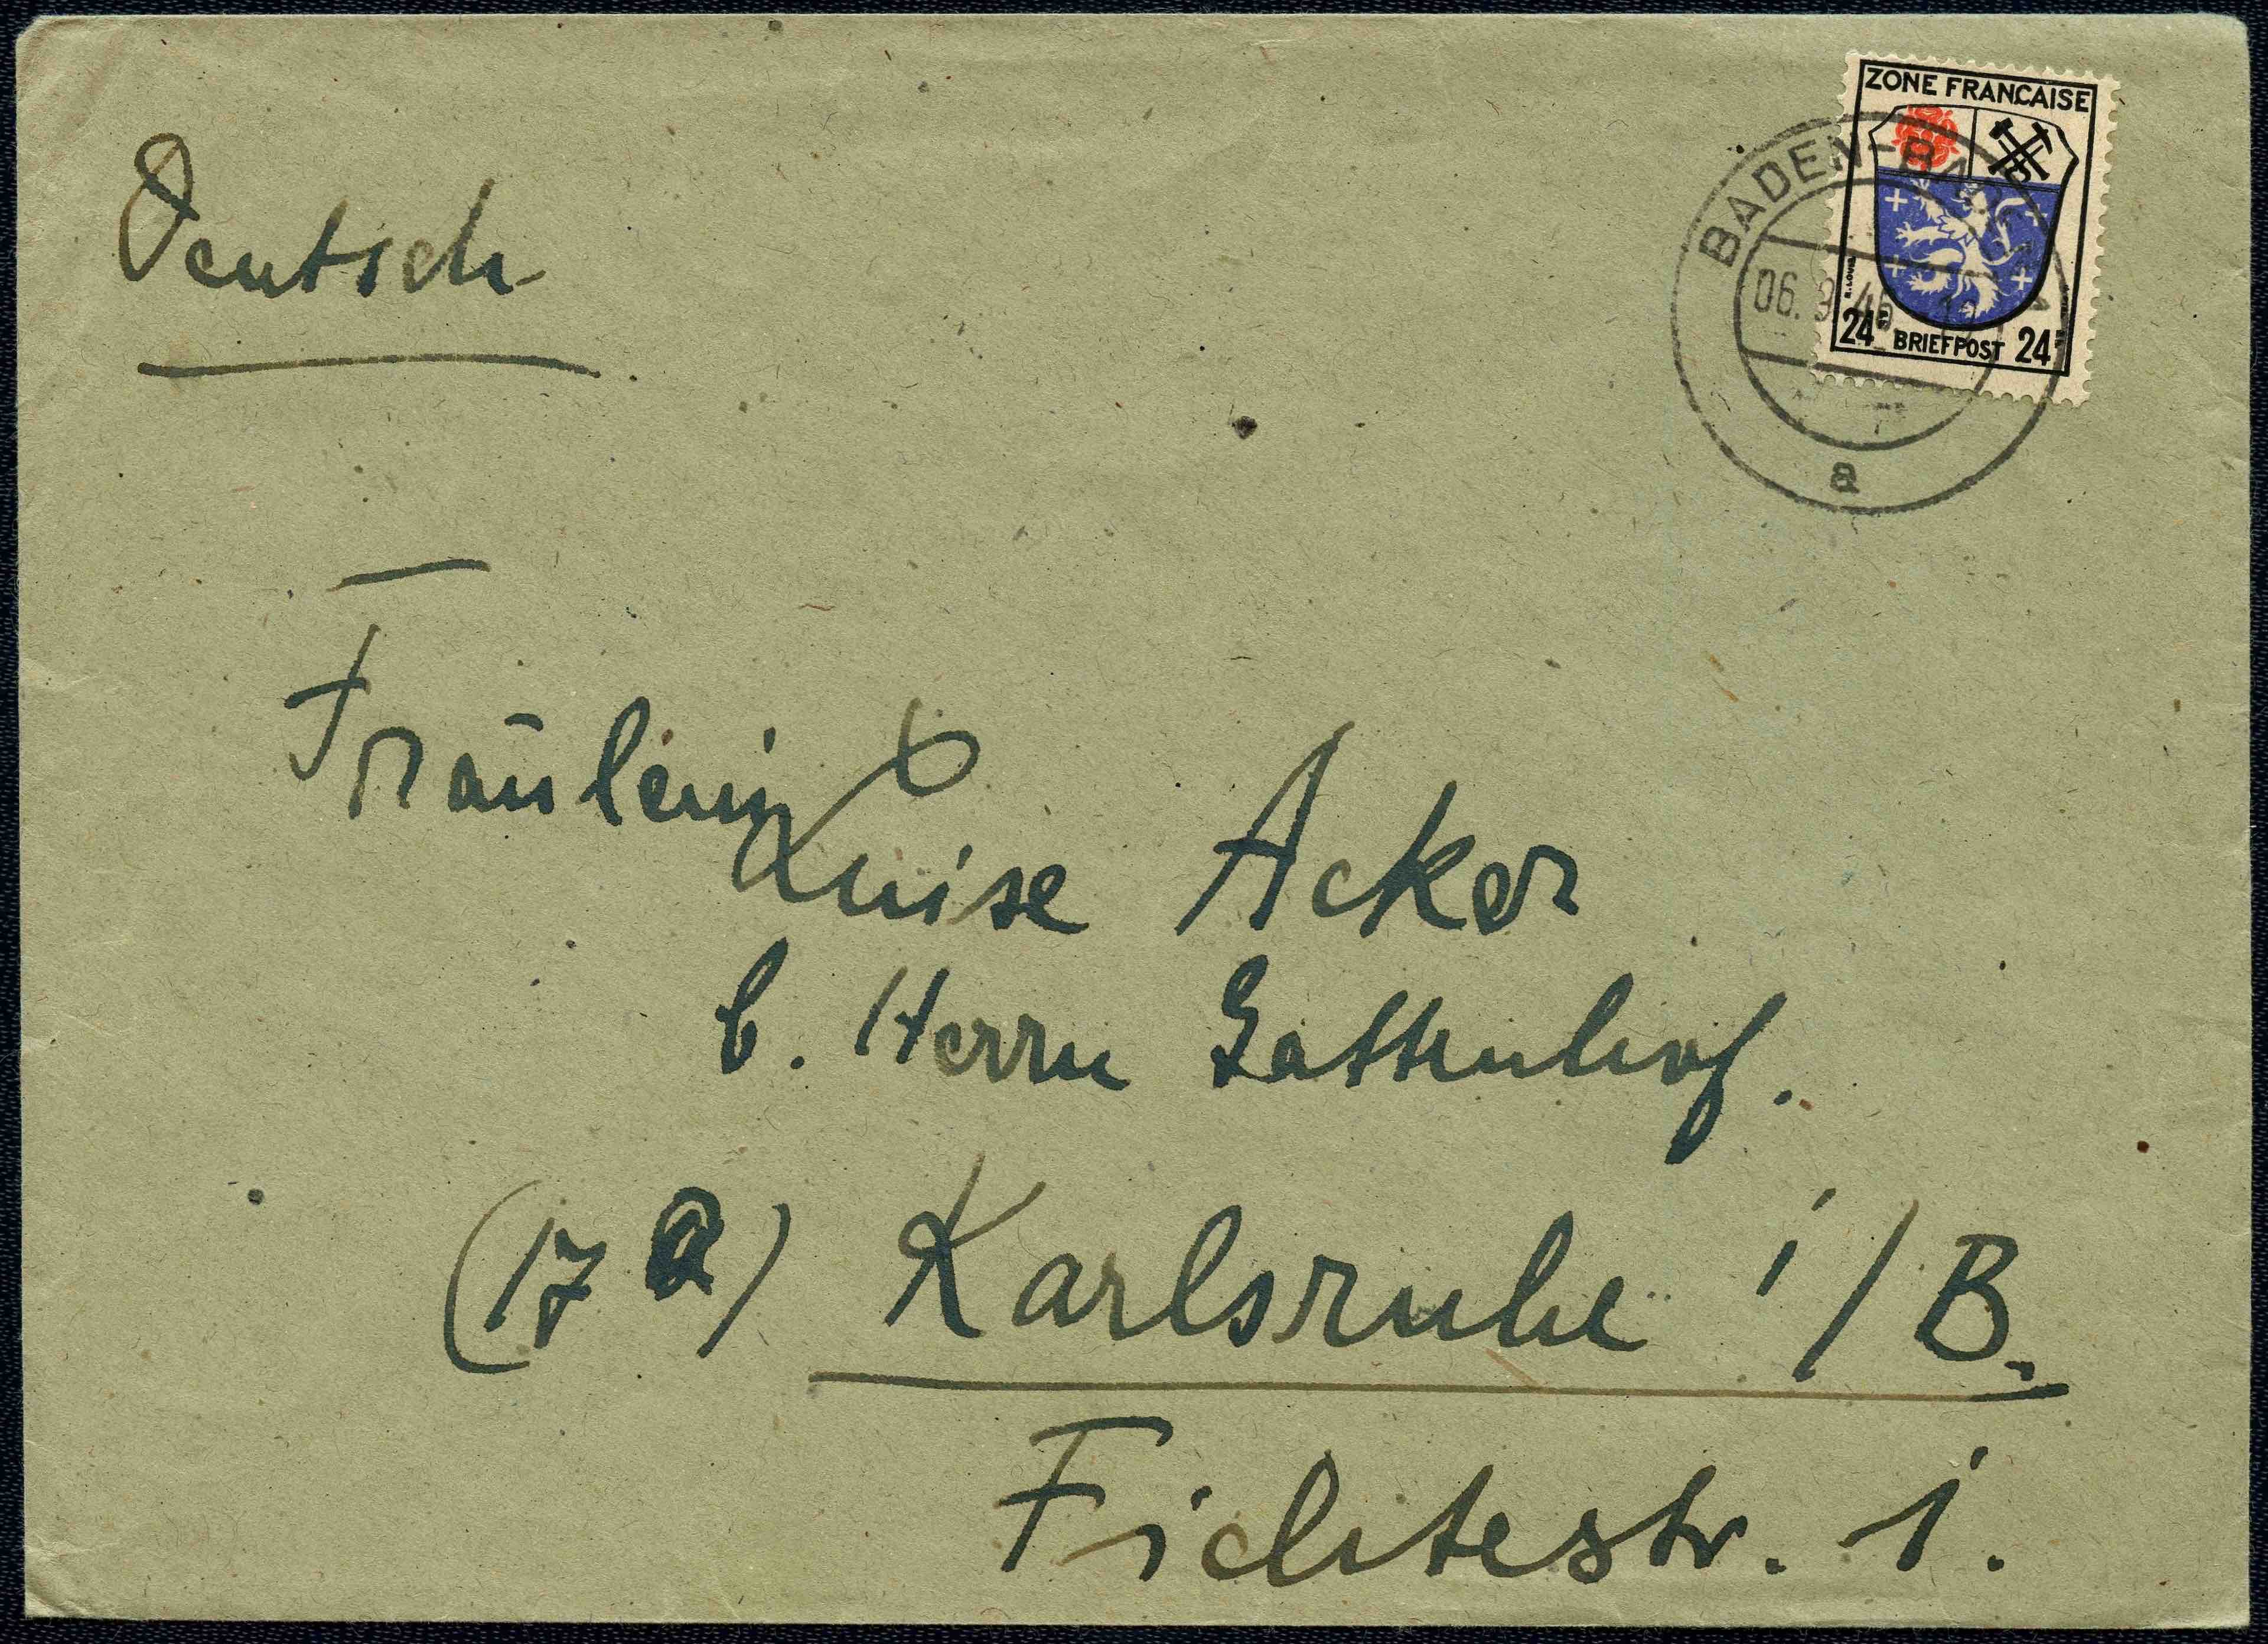 Deutsch
ZONE FRANCAISE
R. LOUIS
24 BRIEFPOST 24
BADEN-BADEN
06.9.46
a
Fräulein
Luise Acker
b. Herrn Gattenhof.
(17a) Karlsruhe i/B.
Fichtestr. 1.